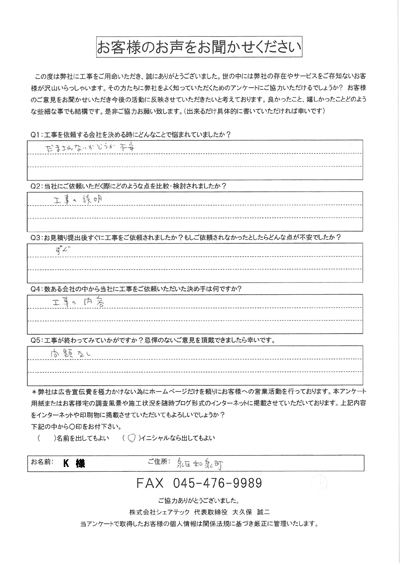 お客様のお声をお聞かせください
この度は弊社に工事をご用命いただき、誠にありがとうございました。世の中には弊社の存在やサービスをご存知ないお客
様が沢山いらっしゃいます。その方たちに弊社をよく知っていただくためのアンケートにご協力いただけるでしょうか？ お客様
のご意見をお聞かせいただき今後の活動に反映させていただきたいと考えております。良かったこと、嬉しかったことどのよう
な些細な事でも結構です。是非ご協力お願い致します。(出来るだけ具体的に書いていただければ幸いです)
Q1：工事を依頼する会社を決める時にどんなことで悩まれていましたか？
だまされないかどうか 不安
Q2：当社にご依頼いただく際にどのような点を比較・検討されましたか？
工事の説明
Q3：お見積り提出後すぐに工事をご依頼されましたか？もしご依頼されなかったとしたらどんな点が不安でしたか？
すぐ
Q4：数ある会社の中から当社に工事をご依頼いただいた決め手は何ですか？
工事の内容
Q5：工事が終わってみていかがですか？忌憚のないご意見を頂戴できましたら幸いです。
問題なし
＊弊社は広告宣伝費を極力かけない為にホームページだけを頼りにお客様への営業活動を行っております。本アンケート
用紙またはお客様宅の調査風景や施工状況を随時ブログ形式のインターネットに掲載させていただいております。上記内容
をインターネットや印刷物に掲載させていただいてもよろしいでしょうか？
下記の中から○印をお付下さい。
(　)名前を出してもよい　(○)イニシャルなら出してもよい
お名前： K 様 ご住所：
FAX 045-476-9989
ご協力ありがとうございました。
株式会社シェアテック 代表取締役 大久保 誠二
当アンケートで取得したお客様の個人情報は関係法規に基づき厳正に管理いたします。